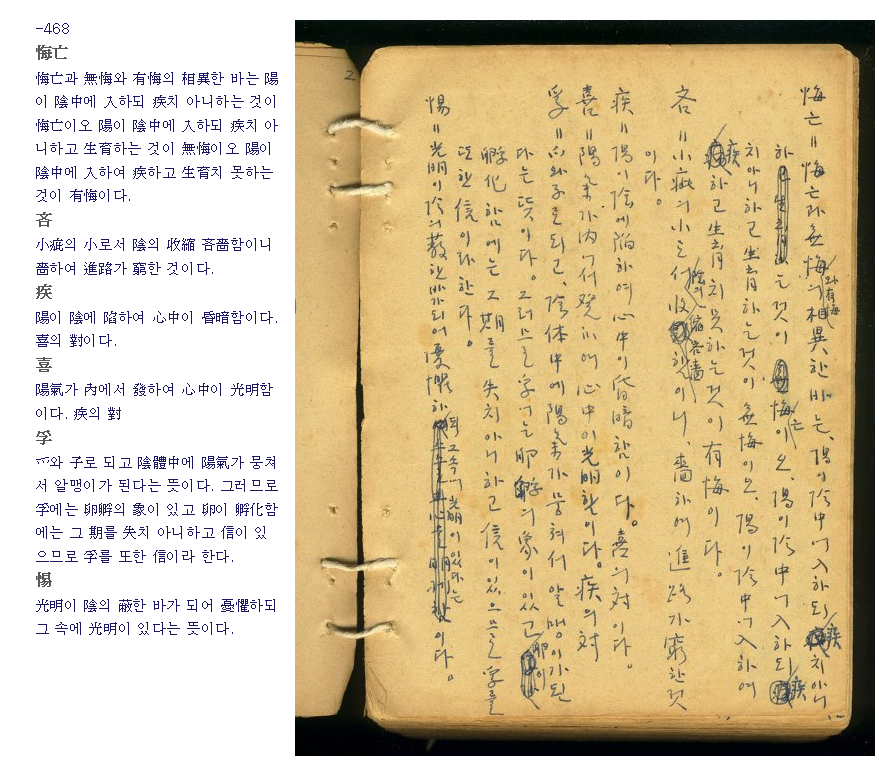 -468
悔亡
悔亡과 無悔와 有悔의 相異한 바는 陽
이 陰中에 入하되 疾치 아니하는 것이
悔亡이오 陽이 陰中에 入하되 疾치 아
니하고 生育하는 것이 無悔이오 陽이
陰中에 入하여 疾하고 生育치 못하는
것이 有悔이다.
吝
小疵의 小로서 陰의 收縮 吝嗇함이니
嗇하여 進路가 窮한 것이다.
疾
陽이 陰에 陷하여 心中이 昏暗함이다.
喜의 對이다.
喜
陽氣가 內에서 發하여 心中이 光明함
이다. 疾의 對
孚
爫와 子로 되고 陰體中에 陽氣가 뭉쳐
서 알맹이가 된다는 뜻이다. 그러므로
孚에는 卵孵의 象이 있고 卵이 孵化함
에는 그 期를 失치 아니하고 信이 있
으므로 孚를 또한 信이라 한다.
惕
光明이 陰의 蔽한 바가 되어 憂懼하되
그 속에 光明이 있다는 뜻이다.
2
悔亡＝悔亡과 無悔와 有悔의 相異한 바는, 陽이 陰中에 入하되 疾치 아니
하는 것이 悔亡이오, 陽이 陰中에 入하되 疾
치 아니하고 生育하는 것이 無悔이오, 陽이 陰中에 入하여
疾하고 生育치 못하는 것이 有悔이다.
吝＝小疵의 小로서 陰의 收縮 吝嗇이니, 嗇하여 進路가 窮한 것
이다.
疾＝陽이 陰에 陷하여 心中이 昏暗함이다. 喜의 対이다.
喜＝陽氣가 內에서 發하여 心中이 光明함이다. 疾의 対
孚＝爫와 子로 되고, 陰体中에 陽氣가 뭉쳐서 알맹이가 된
다는 뜻이다. 그러므로 孚에는 卵孵의 象이 있고 卵이
孵化함에는 그 期를 失치 아니하고 信이 있으므로 孚를
또한 信이라 한다.
惕＝光明이 陰의 蔽한 바가 되어 憂懼하되 그 속에 光明이 있다는 이다.